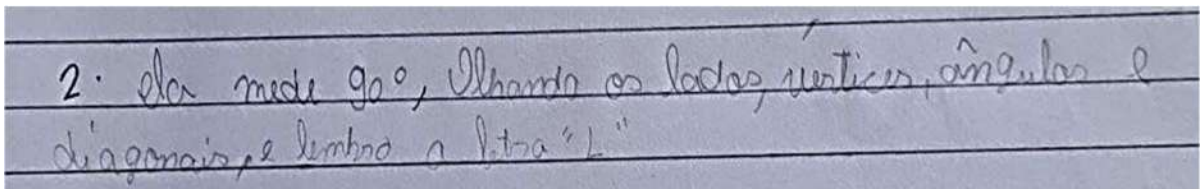 2. Ela mede 90°, Olhando os lados, vértices, ângulos e
diagonais, e lembra a letra "L"